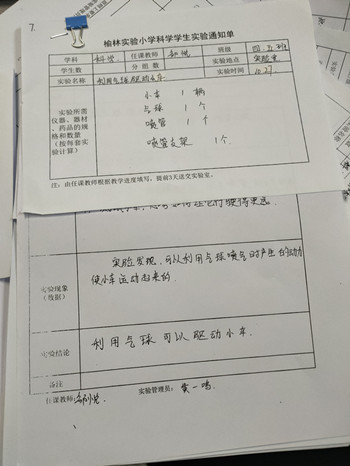 7.
榆林实验小学科学学生实验通知单
学科 科学 任课教师 班级 四.五班
学生数 分组数 实验地点 实验室
实验名称 利用气球驱动小车 实验时间 10.27
实验所需
仪器、器材
、药品的规
格和数量
(按每套实
验计算)
小车 1 辆
气球 1 个
喷管 1 个
喷管支架 1个.
注:由任课教师根据教学进度填写,提前3天送交实验室。
实验现象
(数据)
实验发现,可以利用气球喷气时产生的动力
使小车运动起来的.
实验结论
利用气球可以驱动小车.
备注
任课教师: 实验管理员: 黄一鸣